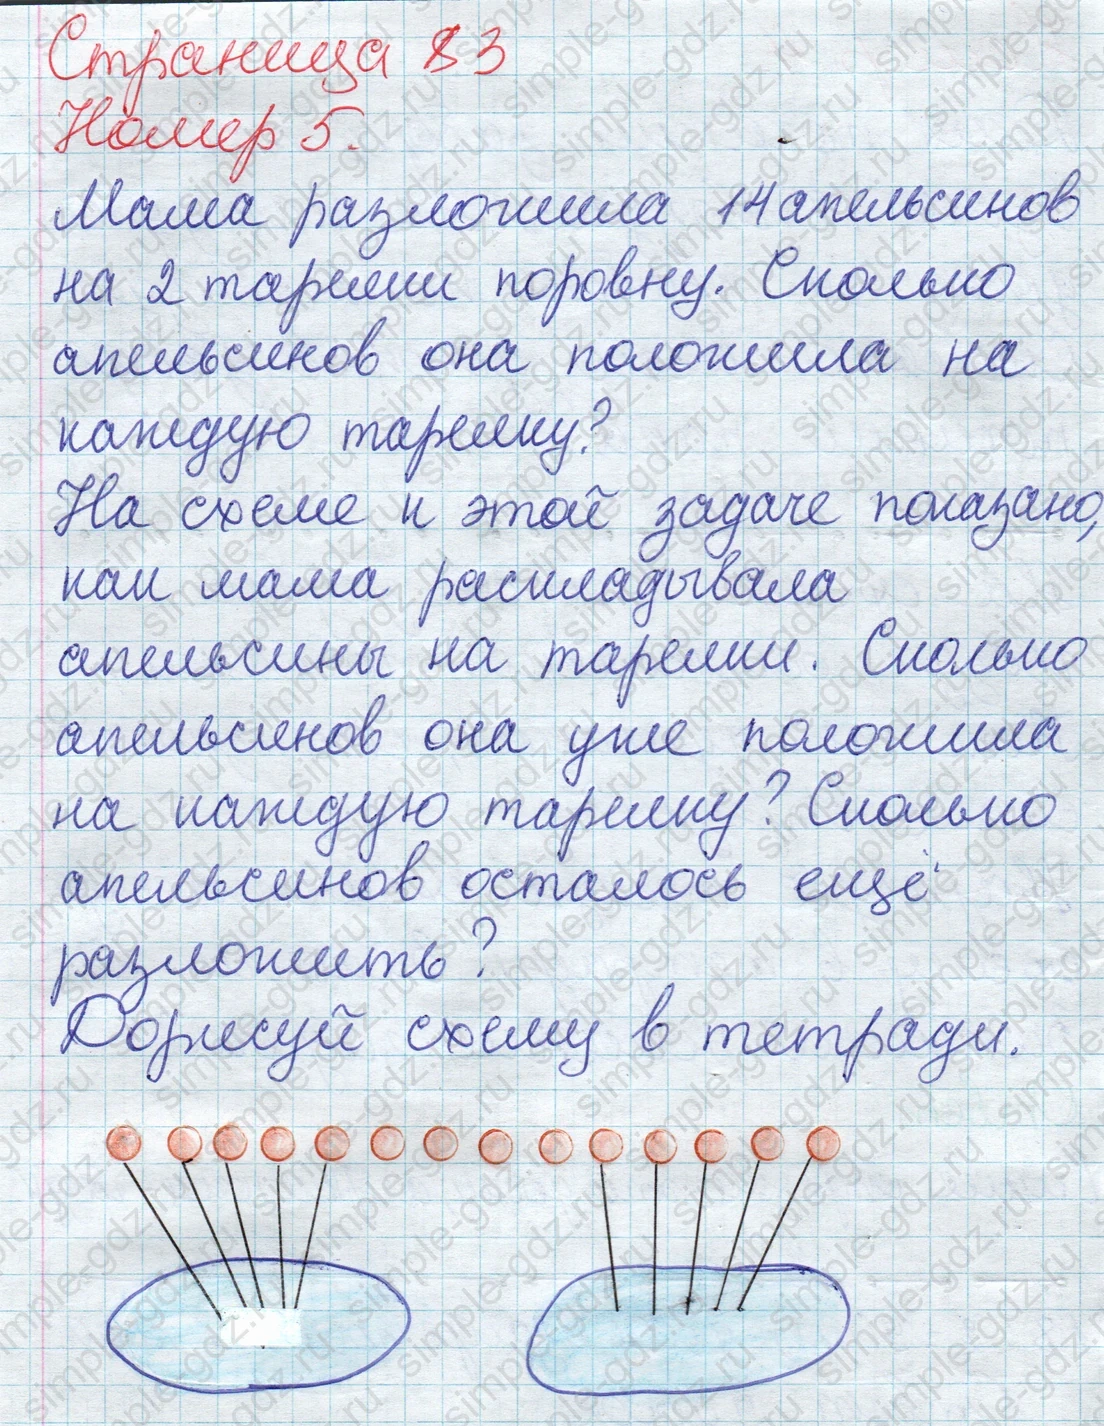 Страница 83
Номер 5.
Мама разложила 14 апельсинов
на 2 тарелки поровну. Сколько
апельсинов она положила на
каждую тарелку?
На схеме к этой задаче показано,
как мама раскладывала
апельсины на тарелки. Сколько
апельсинов она уже положила
на каждую тарелку? Сколько
апельсинов осталось ещё
разложить?
Дорисуй схему в тетради.
simple-gdz.ru